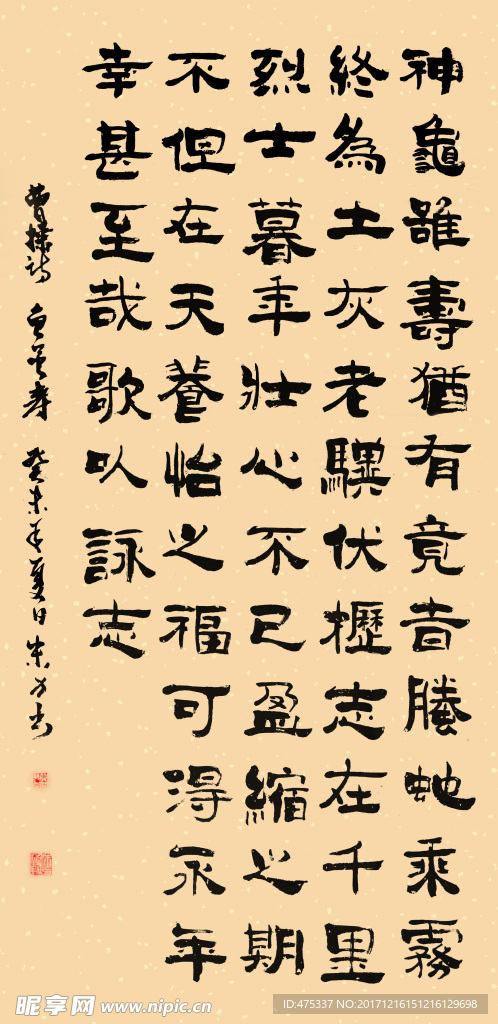 神龜雖壽猶有竟旹螣虵乘霧
終為土灰老驥伏櫪志在千里
烈士暮年壯心不已盈縮之期
不但在天養怡之福可得永年
幸甚至哉歌以詠志
曹操詩 龜雖壽 癸未年夏日朱
昵享网 www.nipic.cn
ID:475337 NO:20171216151216129698